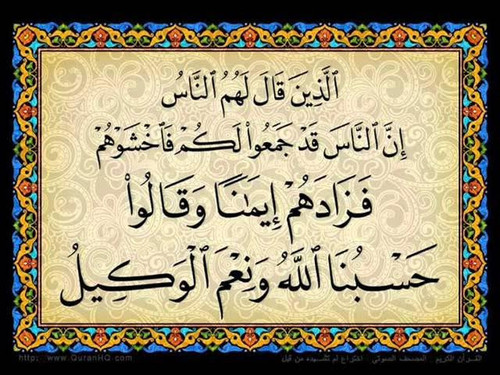 ٱلَّذِينَ قَالَ لَهُمُ ٱلنَّاسُ
إِنَّ ٱلنَّاسَ قَدْ جَمَعُوا۟ لَكُمْ فَٱخْشَوْهُمْ
فَزَادَهُمْ إِيمَٰنًا وَقَالُوا۟
حَسْبُنَا ٱللَّهُ وَنِعْمَ ٱلْوَكِيلُ
http: www.QuranHQ.com القـرآن الكريم المصحف الصوتي اختراع لم تشهده من قبل